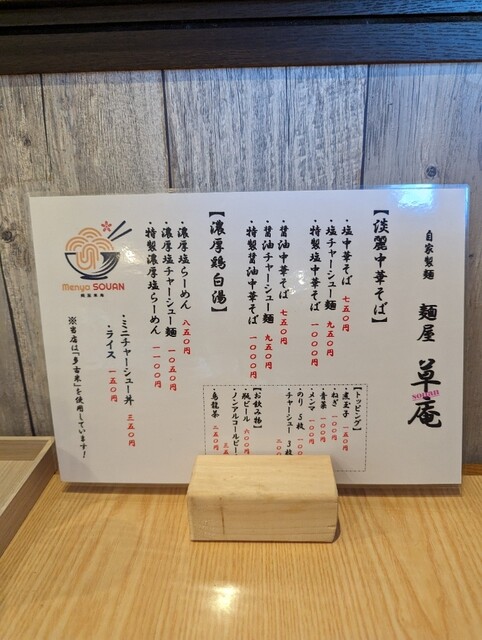 自家製麺 麺屋 草庵
SOUAN
【淡麗中華そば】
・塩中華そば 七五〇円
・塩チャーシュー麺 九五〇円
・特製塩中華そば 一〇〇〇円
・醤油中華そば 七五〇円
・醤油チャーシュー麺 九五〇円
・特製醤油中華そば 一〇〇〇円
【濃厚鶏白湯】
・濃厚塩らーめん 八五〇円
・濃厚塩チャーシュー麺 一〇五〇円
・特製濃厚塩らーめん 一一〇〇円
【トッピング】
・煮玉子 一五〇円
・ねぎ 一〇〇円
・青菜 一〇〇円
・メンマ 一〇〇円
・のり 5枚 一〇
・チャーシュー 3枚
【お飲み物】
・瓶ビール 六〇〇円
・ノンアルコールビー
・烏龍茶 二五〇
・ミニチャーシュー丼 三五〇円
・ライス 一五〇円
※当店は「多古米」を使用しています！
Menya SOUAN